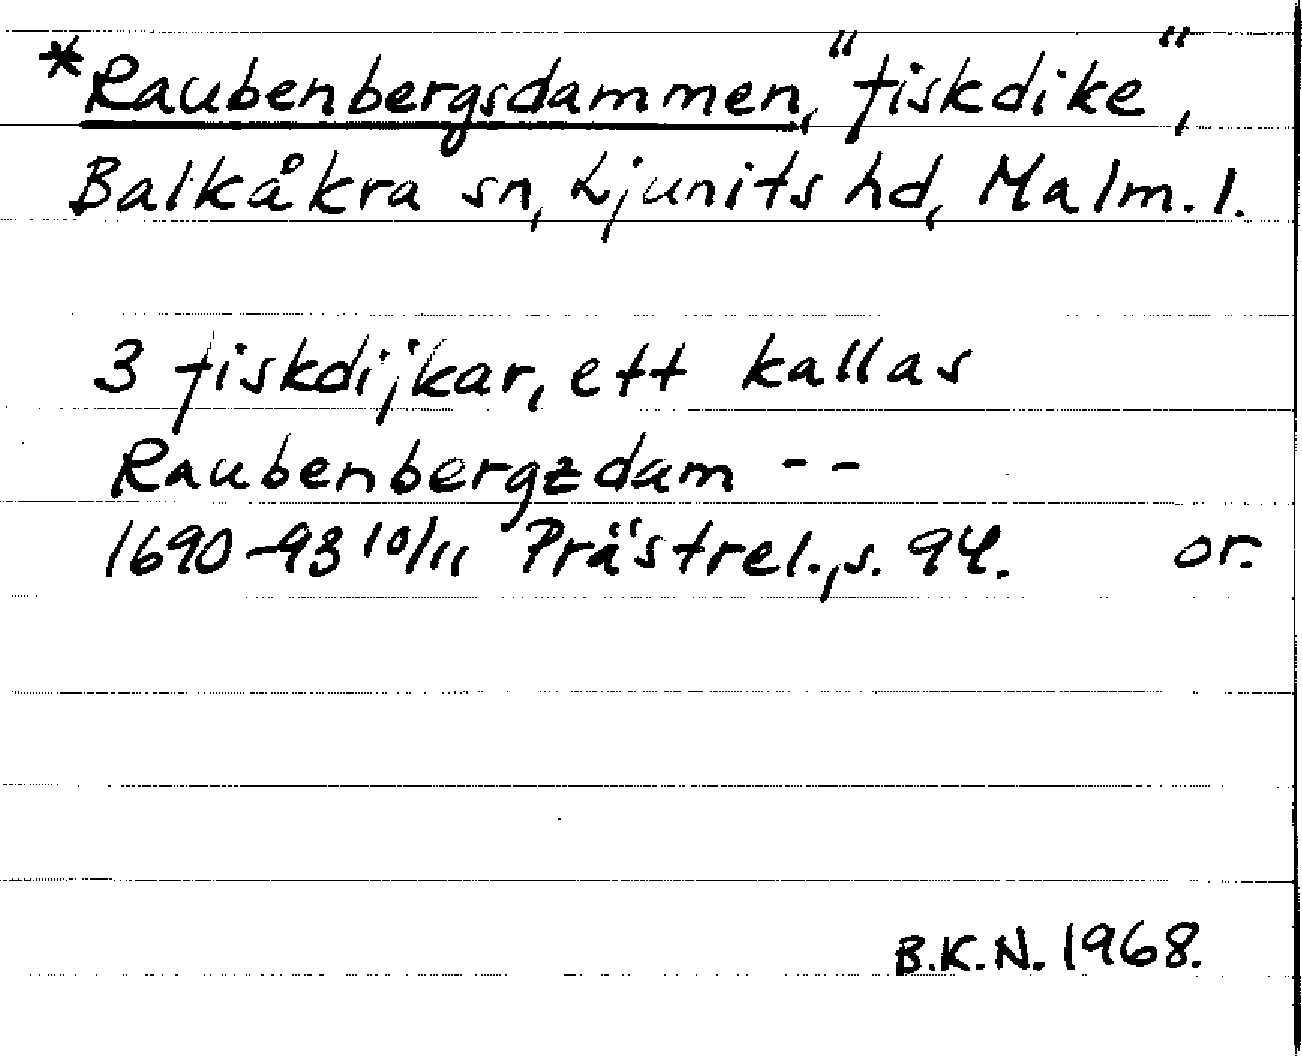 *Raubenbergsdammen, "fiskdike",
Balkåkra sn, Ljunits hd, Malm. l.
3 fiskdijkar, ett kallas
Raubenbergzdam - -
1690-93 10/11 Prästrel., s. 94. or.
B.K.N. 1968.